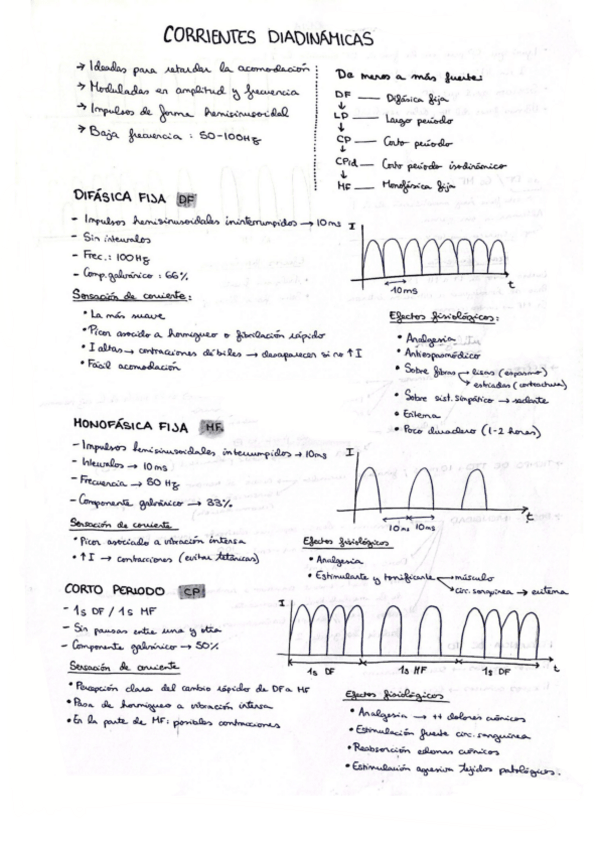 CORRIENTES DIADINÁMICAS
→ Ideadas para retardar la acomodación
→ Moduladas en amplitud y frecuencia
→ Impulsos de forma hemisinusoidal
→ Baja frecuencia : 50-100Hz
De menos a más fuerte:
DF — Difásica fija
↓
LP — Largo periodo
↓
CP — Corto periodo
↓
CPid — Corto periodo isodinámico
↓
MF — Monofásica fija
DIFÁSICA FIJA DF
- Impulsos hemisinusoidales ininterrumpidos → 10ms
- Sin intervalos
- Frec.: 100Hz
- Comp. galvánico : 66%
Sensación de corriente:
• La más suave
• Picor asociado a hormigueo o fibrilación rápido
• I altas → contracciones débiles → desaparecer si no ↑ I
• Fácil acomodación
I
t
10ms
Efectos fisiológicos:
• Analgesia
• Antiespasmódico
• Sobre fibras → lisas (espasmo)
→ estriadas (contractura)
• Sobre sist. simpático → sedante
• Eritema
• Poco duradero (1-2 horas)
MONOFÁSICA FIJA MF
- Impulsos hemisinusoidales interrumpidos → 10ms
- Intervalos → 10ms
- Frecuencia → 50 Hz
- Componente galvánico → 33%
Sensación de corriente
• Picor asociado a vibración intensa
• ↑ I → contracciones (evitar tetánicas)
I
t
10ms 10ms
Efectos fisiológicos
• Analgesia
• Estimulante y tonificante → músculo
→ circ. sanguínea → eritema
CORTO PERIODO CP
- 1s DF / 1s MF
- Sin pausas entre una y otra
- Componente galvánico → 50%
Sensación de corriente
• Percepción clara del cambio rápido de DF a MF
• Pasa de hormigueo a vibración intensa
• En la parte de MF: posibles contracciones
I
t
1s DF 1s MF 1s DF
Efectos fisiológicos
• Analgesia → ++ dolores crónicos
• Estimulación fuerte circ. sanguínea
• Reabsorción edemas crónicos
• Estimulación agresiva tejidos patológicos.